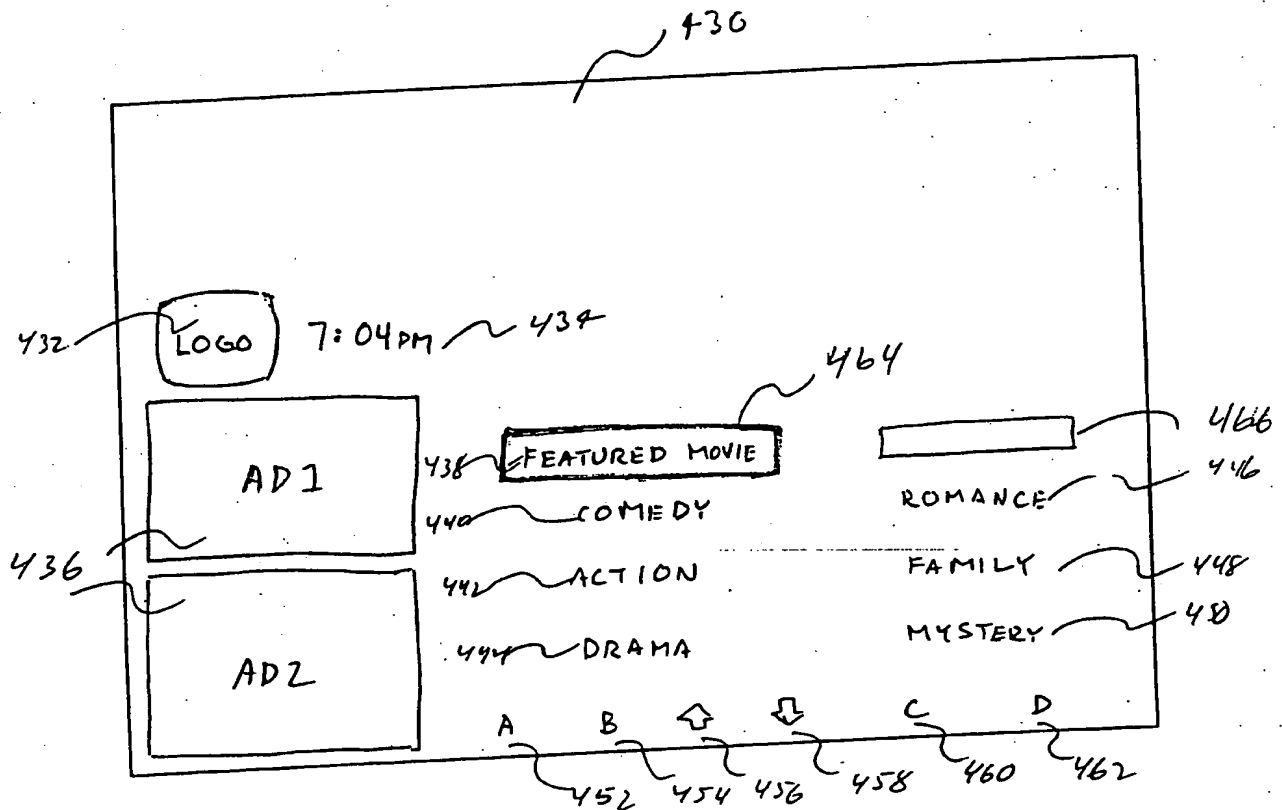 430
432 LOGO 7:04PM 434
464
AD1 438 FEATURED MOVIE 466
440 COMEDY ROMANCE 446
436 442 ACTION FAMILY 448
AD2 444 DRAMA MYSTERY 450
A B C D
452 454 456 458 460 462